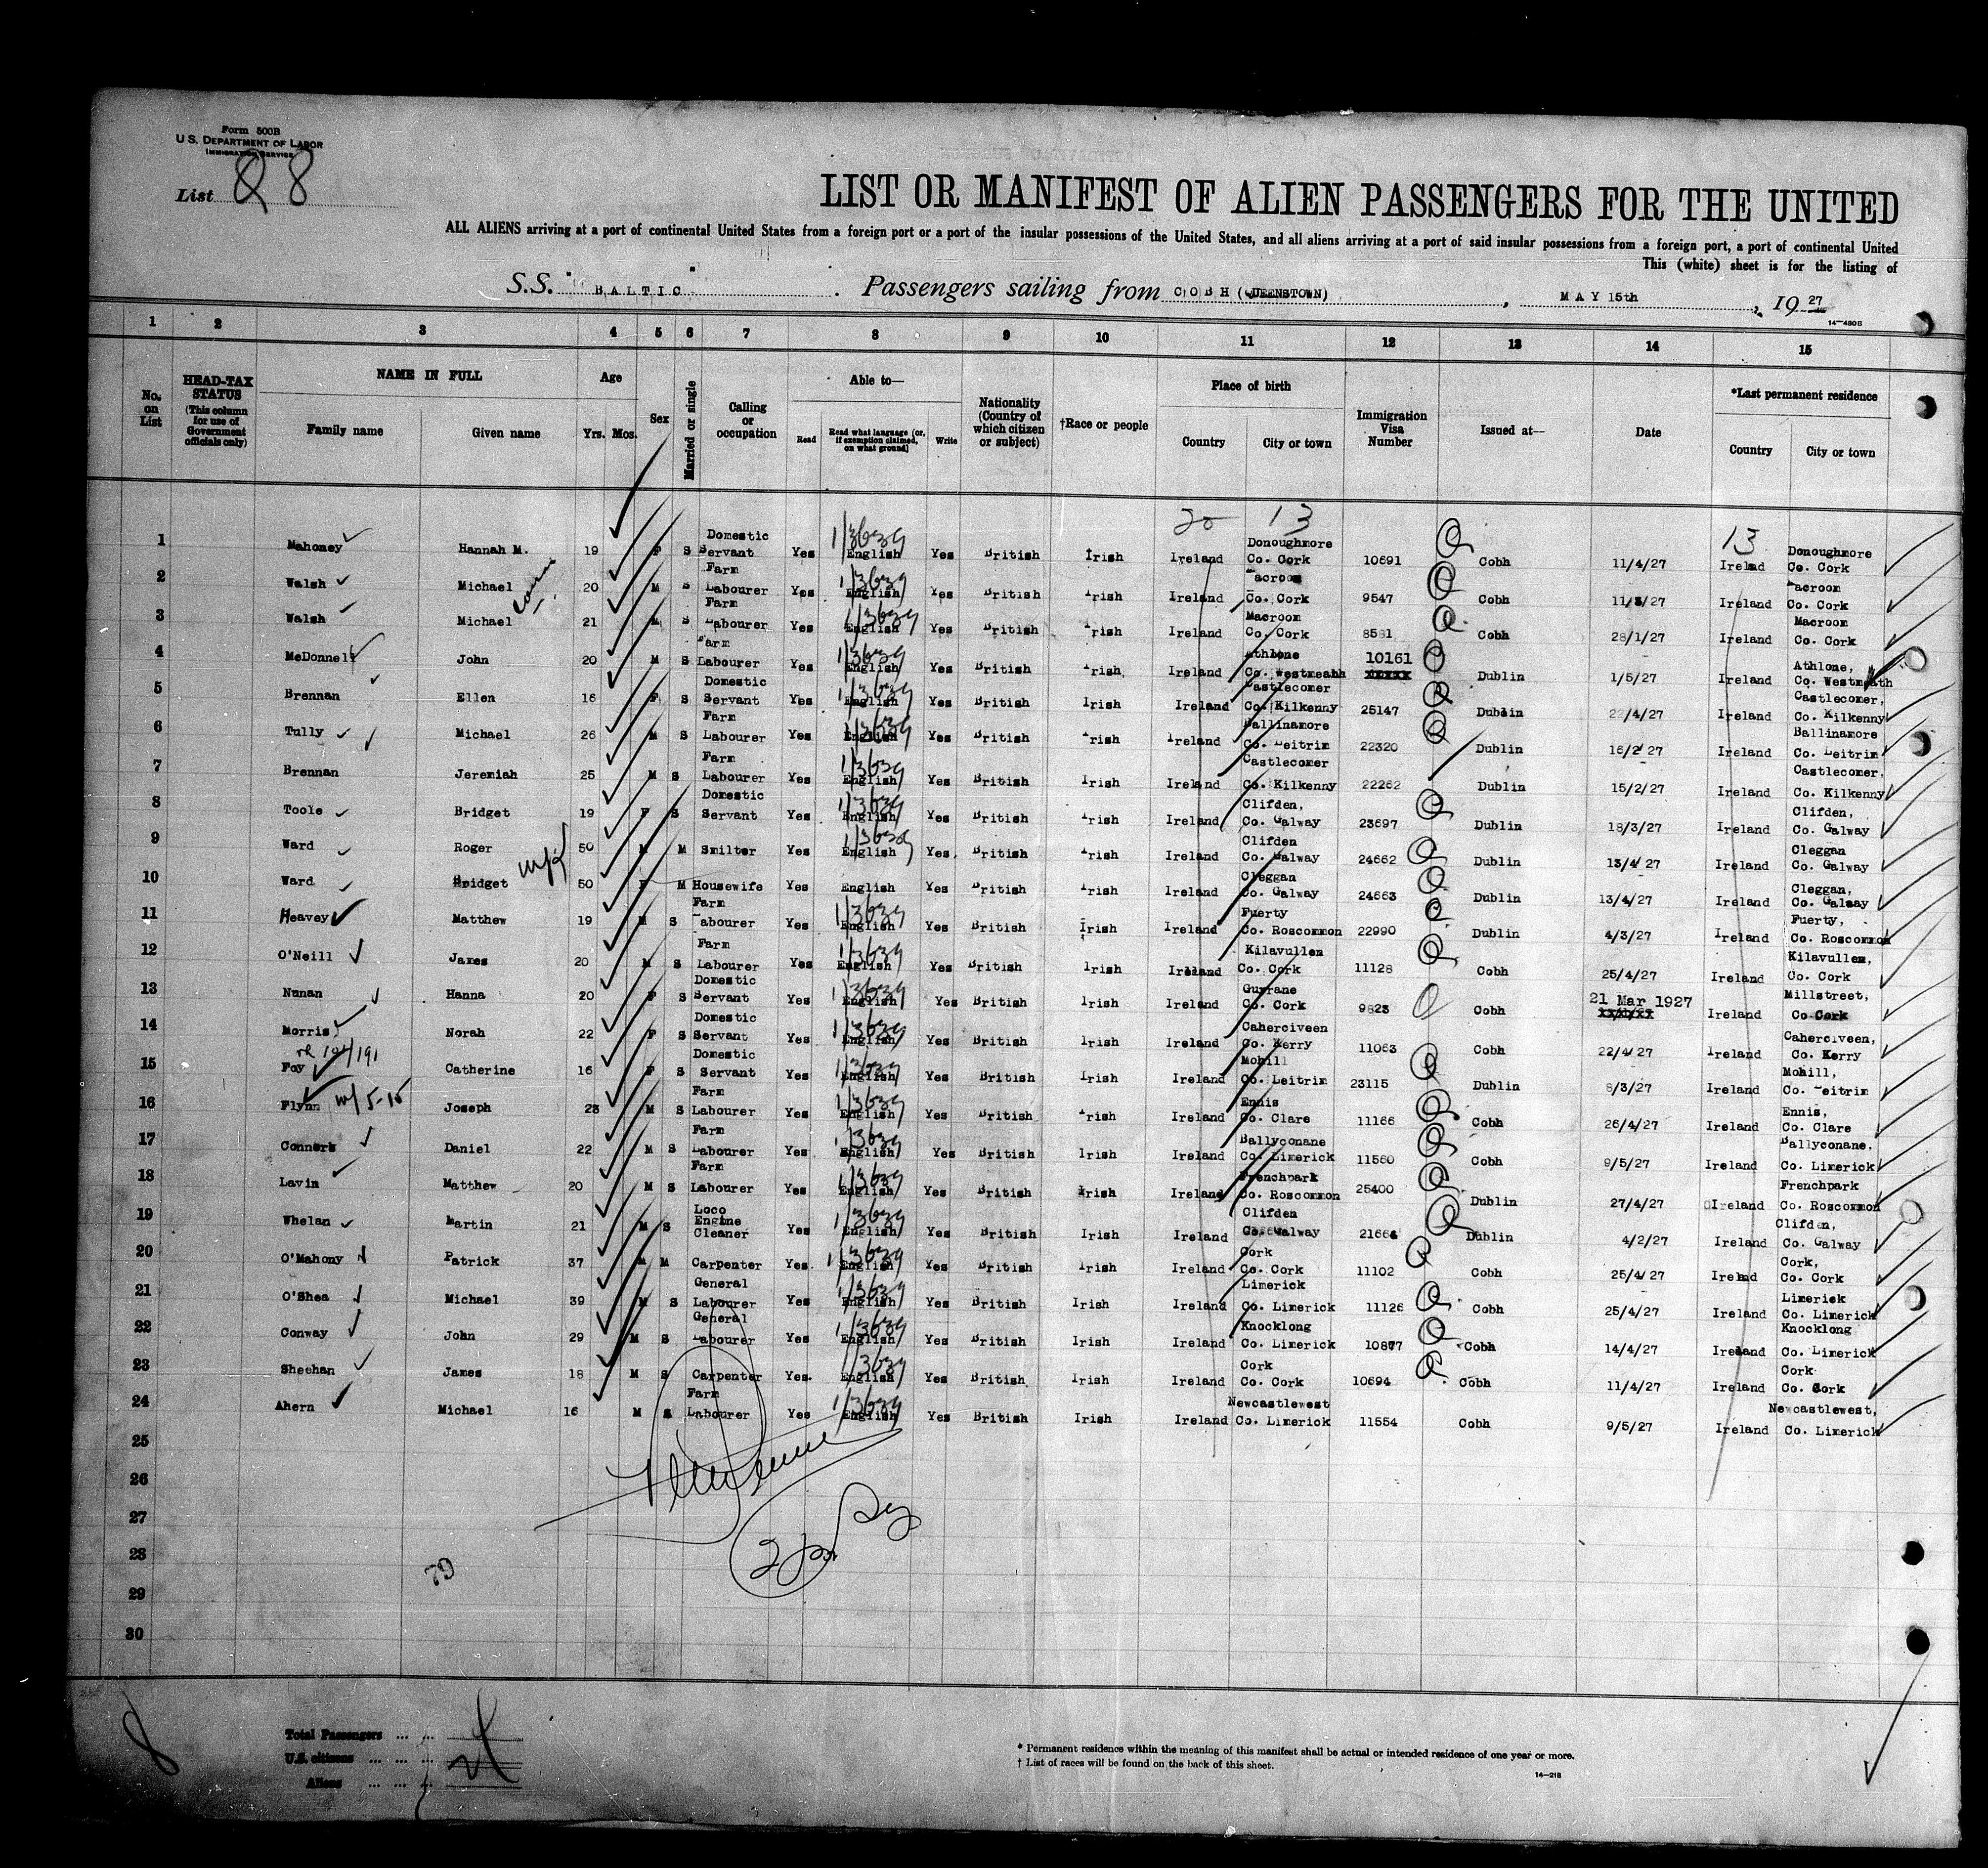 Form 500B
U.S. DEPARTMENT OF LABOR
IMMIGRATION SERVICE
List 28
LIST OR MANIFEST OF ALIEN PASSENGERS FOR THE UNITED
ALL ALIENS arriving at a port of continental United States from a foreign port or a port of the insular possessions of the United States, and all aliens arriving at a port of said insular possessions from a foreign port, a port of continental United
This (white) sheet is for the listing of
S.S. "BALTIC" Passengers sailing from COBH (QUEENSTOWN), MAY 15th, 1927
14—480B
1 2 3 4 5 6 7 8 9 10 11 12 13 14 15
No. on List
HEAD-TAX STATUS (This column for use of Government officials only)
NAME IN FULL
Family name Given name
Age
Yrs. Mos.
Sex
Married or single
Calling or occupation
Able to—
Read Read what language (or, if exemption claimed, on what ground) Write
Nationality (Country of which citizen or subject)
†Race or people
Place of birth
Country City or town
Immigration Visa Number
Issued at—
Date
*Last permanent residence
Country City or town
20 13 13
1 Mahoney Hannah M. 19 F S Domestic Servant Yes English Yes British Irish Ireland Donoughmore Co. Cork 10691 Cobh 11/4/27 Ireland Donoughmore Co. Cork
2 Walsh Michael 20 M S Farm Labourer Yes English Yes British Irish Ireland Macroom Co. Cork 9547 Cobh 11/3/27 Ireland Macroom Co. Cork
3 Walsh Michael 21 M S Farm Labourer Yes English Yes British Irish Ireland Macroom Co. Cork 8581 Cobh 28/1/27 Ireland Macroom Co. Cork
4 McDonnell John 20 M S Farm Labourer Yes English Yes British Irish Ireland Athlone Co. Westmeath 10161 Dublin 1/5/27 Ireland Athlone, Co. Westmeath
5 Brennan Ellen 16 F S Domestic Servant Yes English Yes British Irish Ireland Castlecomer Co. Kilkenny 25147 Dublin 22/4/27 Ireland Castlecomer, Co. Kilkenny
6 Tully Michael 26 M S Farm Labourer Yes English Yes British Irish Ireland Ballinamore Co. Leitrim 22320 Dublin 16/2/27 Ireland Ballinamore Co. Leitrim
7 Brennan Jeremiah 25 M S Farm Labourer Yes English Yes British Irish Ireland Castlecomer Co. Kilkenny 22262 Dublin 15/2/27 Ireland Castlecomer, Co. Kilkenny
8 Toole Bridget 19 F S Domestic Servant Yes English Yes British Irish Ireland Clifden, Co. Galway 23697 Dublin 18/3/27 Ireland Clifden, Co. Galway
9 Ward Roger 50 M M Smilter Yes English Yes British Irish Ireland Clifden Co. Galway 24662 Dublin 13/4/27 Ireland Cleggan Co. Galway
10 Ward Bridget 50 F M Housewife Yes English Yes British Irish Ireland Cleggan Co. Galway 24663 Dublin 13/4/27 Ireland Cleggan, Co. Galway
11 Heavey Matthew 19 M S Farm Labourer Yes English Yes British Irish Ireland Fuerty Co. Roscommon 22990 Dublin 4/3/27 Ireland Fuerty, Co. Roscommon
12 O'Neill James 20 M S Farm Labourer Yes English Yes British Irish Ireland Kilavullen Co. Cork 11128 Cobh 25/4/27 Ireland Kilavullen, Co. Cork
13 Nunan Hanna 20 F S Domestic Servant Yes English Yes British Irish Ireland Gurrane Co. Cork 9823 Cobh 21 Mar 1927 Ireland Millstreet, Co Cork
14 Morris Norah 22 F S Domestic Servant Yes English Yes British Irish Ireland Caherciveen Co. Kerry 11063 Cobh 22/4/27 Ireland Caherciveen, Co. Kerry
15 Foy Catherine 16 F S Domestic Servant Yes English Yes British Irish Ireland Mohill Co. Leitrim 23115 Dublin 8/3/27 Ireland Mohill, Co. Leitrim
16 Flynn Joseph 23 M S Farm Labourer Yes English Yes British Irish Ireland Ennis Co. Clare 11166 Cobh 26/4/27 Ireland Ennis, Co. Clare
17 Connors Daniel 22 M S Farm Labourer Yes English Yes British Irish Ireland Ballyconane Co. Limerick 11560 Cobh 9/5/27 Ireland Ballyconane, Co. Limerick
18 Lavin Matthew 20 M S Farm Labourer Yes English Yes British Irish Ireland Frenchpark Co. Roscommon 25400 Dublin 27/4/27 Ireland Frenchpark Co. Roscommon
19 Whelan Martin 21 M S Loco Engine Cleaner Yes English Yes British Irish Ireland Clifden Co. Galway 21666 Dublin 4/2/27 Ireland Clifden, Co. Galway
20 O'Mahony Patrick 37 M M Carpenter Yes English Yes British Irish Ireland Cork Co. Cork 11102 Cobh 25/4/27 Ireland Cork, Co. Cork
21 O'Shea Michael 39 M S General Labourer Yes English Yes British Irish Ireland Limerick Co. Limerick 11126 Cobh 25/4/27 Ireland Limerick Co. Limerick
22 Conway John 29 M S General Labourer Yes English Yes British Irish Ireland Knocklong Co. Limerick 10877 Cobh 14/4/27 Ireland Knocklong Co. Limerick
23 Sheehan James 18 M S Carpenter Yes English Yes British Irish Ireland Cork Co. Cork 10694 Cobh 11/4/27 Ireland Cork Co. Cork
24 Ahern Michael 16 M S Farm Labourer Yes English Yes British Irish Ireland Newcastlewest Co. Limerick 11554 Cobh 9/5/27 Ireland Newcastlewest, Co. Limerick
25
26
27
28
29
30
79
Total Passengers ... ...
U.S. citizens ... ... ...
Aliens ... ... ...
24
* Permanent residence within the meaning of this manifest shall be actual or intended residence of one year or more.
† List of races will be found on the back of this sheet.
14—218